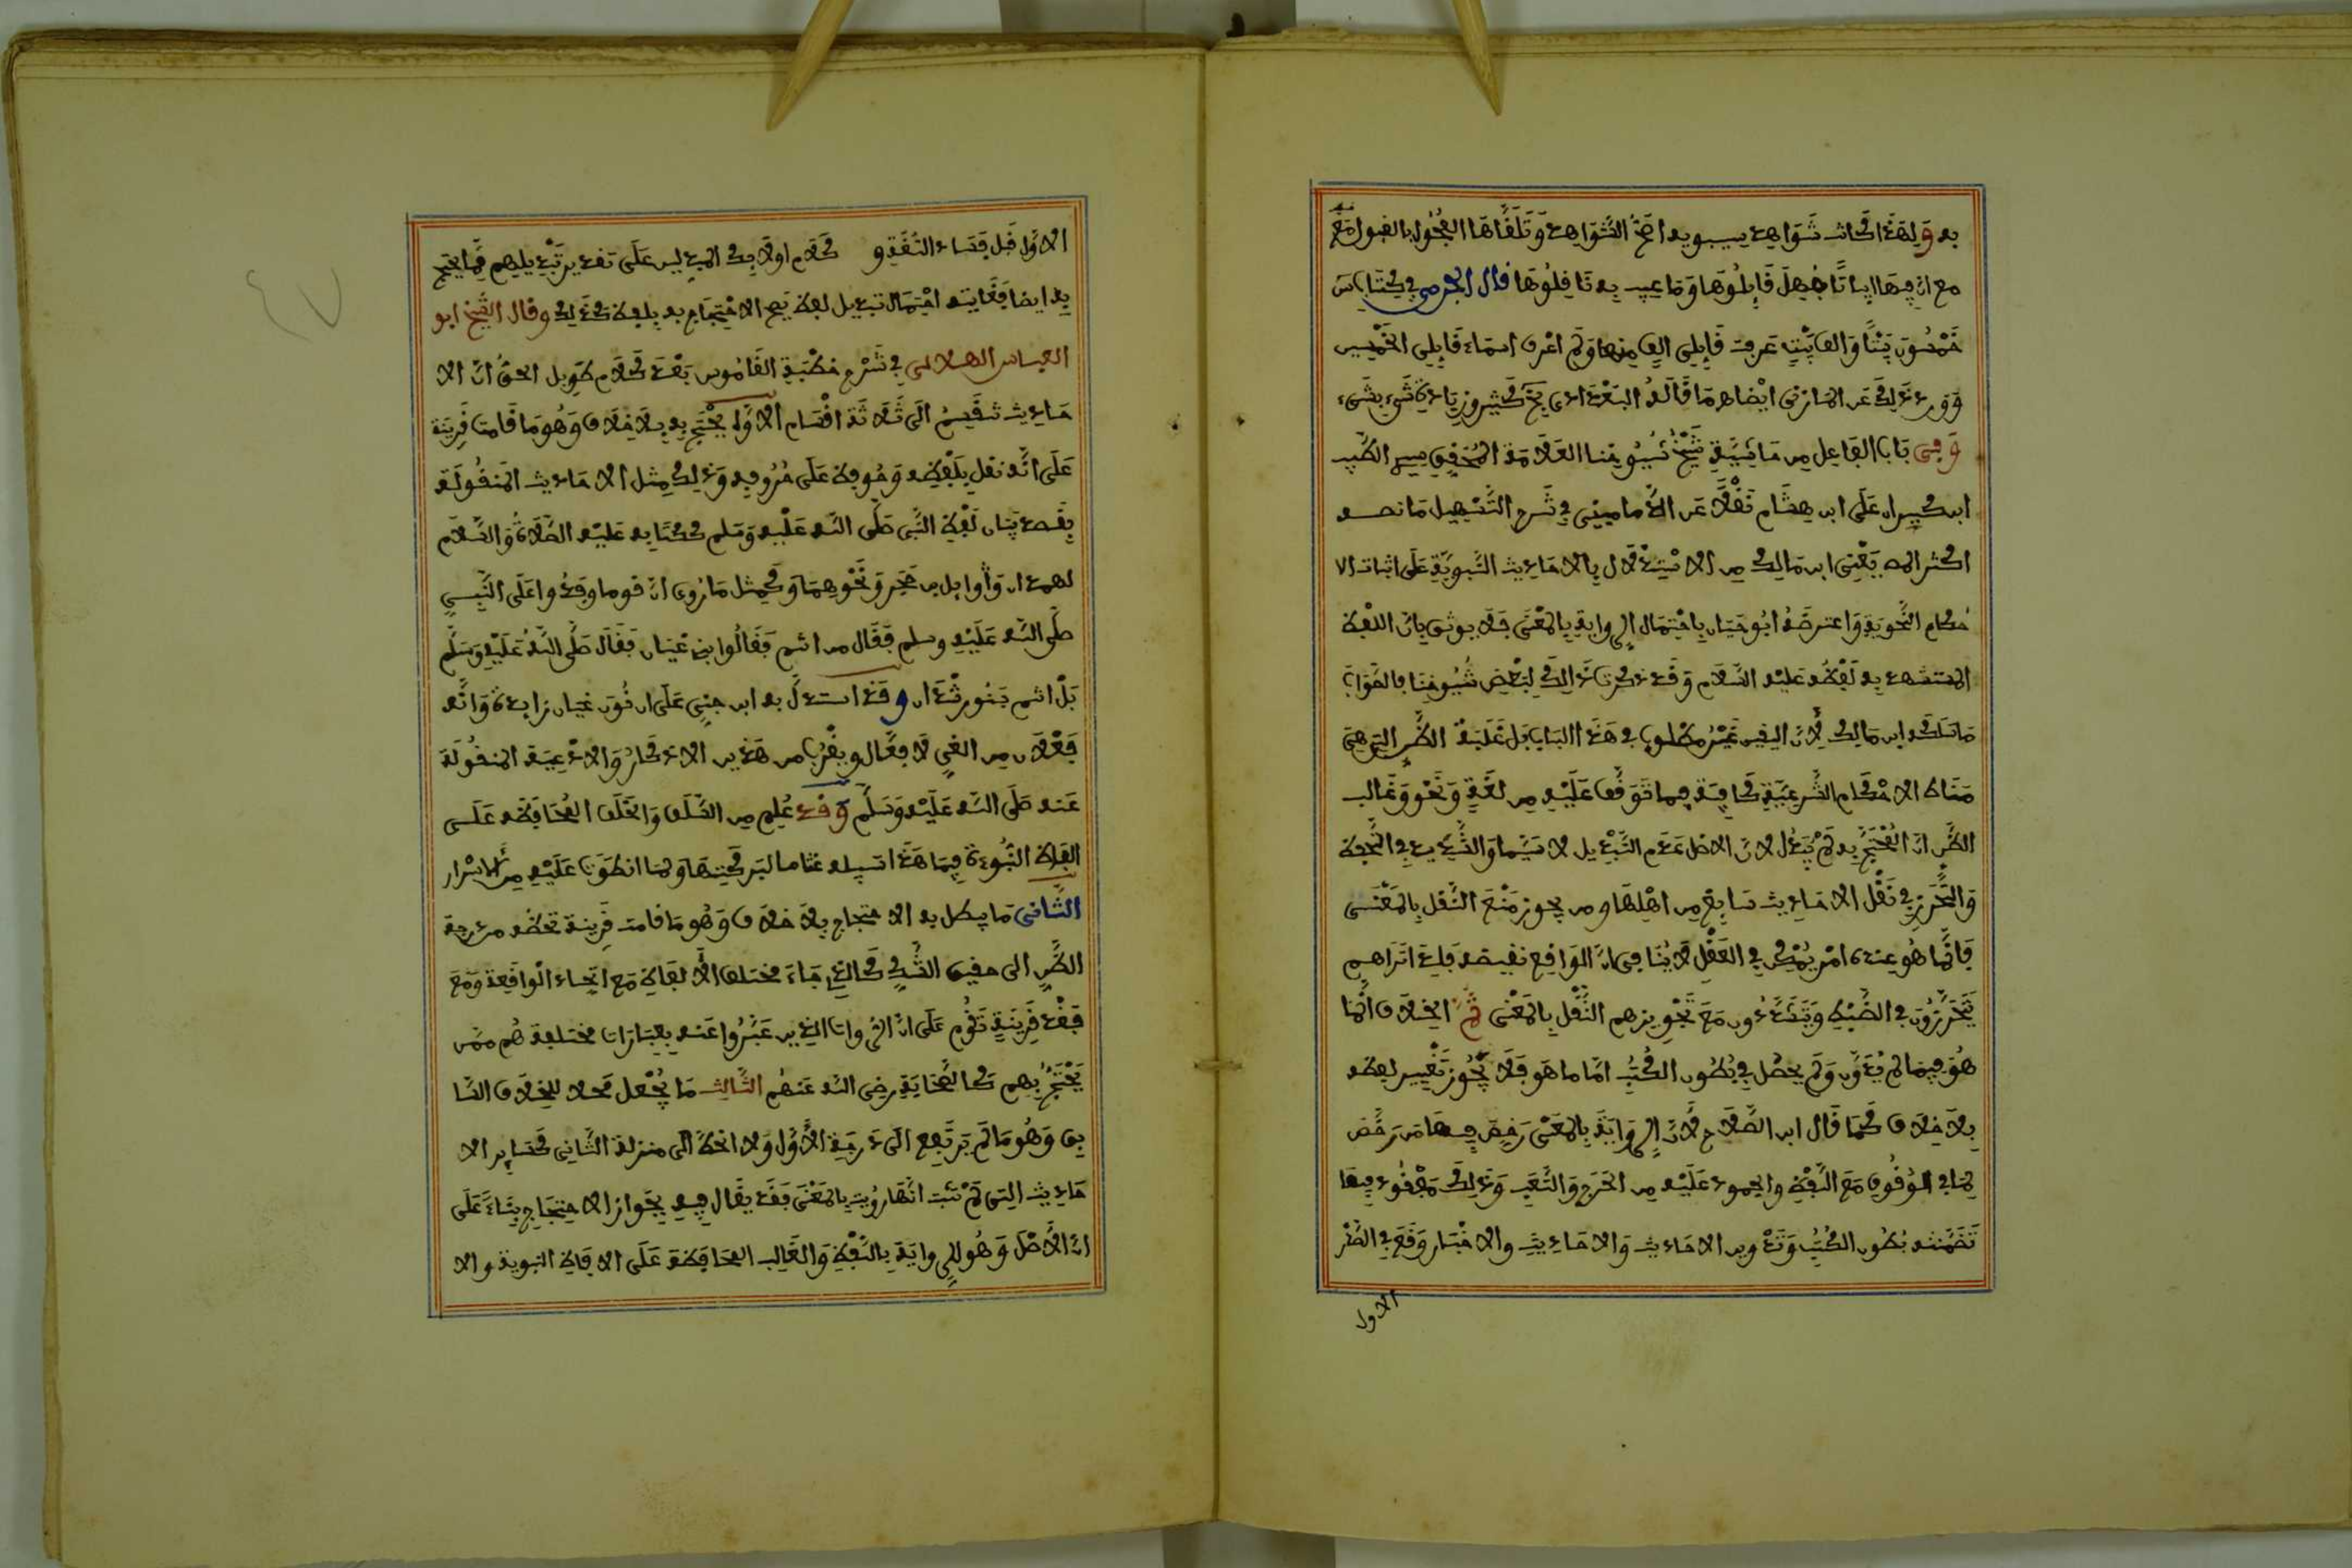 به ولهذا كانت شواهد سيبويه اصح الشواهد وتلقاها الفحول بالقبول مع
مع ان فيها ابياتا جهل قايلوها وما عيب به ناقلوها قال الجرمي في كتاب س
خمسون بيتا والف بيت عرفت قايلي الف منها ولم اعرف اسماء قايلي الخمسين
وورد ذلك عن المازني ايضا
وفى باب الفاعل من حاشية شيخ شيوخنا العلامة المحقق سيد الطيب
ابن كيران على ابن هشام نقلا عن الدماميني في شرح التسهيل ما نصه
اكثر المص يعنى ابن مالك من الاستدلال بالاحاديث النبوية على اثبات الا
حكام النحوية واعترضه ابو حيان باحتمال الرواية بالمعنى فلا يوثق بان اللفظ
المستشهد به لفظه عليه السلام وقد ذكرت ذلك لبعض شيوخنا فالصواب
ما سلكه ابن مالك لان اليقين غير مطلوب في هذا الباب بل غلبة الظن التي هي
مناط الاحكام الشرعية كافية فيما توقف عليه من لغة ونحو وغالب
الظن ان المحتج به لم يبدل لان الاصل عدم التبديل لا سيما والتشديد في الضبط
والتحرز في نقل الاحاديث شايع من اهلها ومن يجوز منع النقل بالمعنى
فانما هو عنده امر يمكن في العقل لا ينافى ان الواقع نقيضه فلذا تراهم
يتحرزون في الضبط ويتشددون مع تجويزهم النقل بالمعنى ثم الخلاف انما
هو فيما لم يدون ولم يحصل في بطون الكتب اما ما هو فلا يجوز تغيير لفظه
بلا خلاف كما قال ابن الصلاح لان الرواية بالمعنى رخص فيها من رخص
لما في الوقوف مع اللفظ والجمود عليه من الحرج والتعب وذلك مفقود فيما
تضمنته بطون الكتب وتدوين الاحاديث والاحاديث والاخبار وقع في الصدر
الاول
الاول قبل فساد اللغة و كلام اولايك المبدلين على تقدير تبديلهم مما يحتج
به ايضا فغايته احتمال تبديل لفظ يصح الاحتجاج به بلفظ كذلك وقال الشيخ ابو
العباس الهلالى في شرح خطبة القاموس بعد كلام طويل الحق ان الا
حاديث تنقسم الى ثلاثة اقسام الاول يحتج به بلا خلاف وهو ما قامت قرينة
على انه نقل بلفظه وحوفظ على حروفه وذلك مثل الاحاديث المنقولة
بقصد بيان لفظ النبى صلى الله عليه وسلم ككتابه عليه الصلاة والسلام
لهمدان ووايل بن حجر ونحوهما وكمثل ما روى ان قوما وفدوا على النبي
صلى الله عليه وسلم فقال من انتم فقالوا بنو غيان فقال صلى الله عليه وسلم
بل انتم بنو رشدان وقد استدل به ابن جني على ان نون غيان زايدة وانه
فعلان من الغي لا فعال ويقرب من هذين الاذكار والادعية المنقولة
عنه صلى الله عليه وسلم وقد علم من السلف والخلف المحافظة على
الفاظ النبوءة فيما هذا سبيله التماسا لبركتها ولما انطوت عليه من الاسرار
الثانى ما يبطل به الاحتجاج بلا خلاف وهو ما قامت قرينة تحطه من درجة
الظن الى حضيض الشك كالذي جاء مختلف الالفاظ مع اتحاد الواقعة ومع
فقد قرينة تقوم على ان الرواة الذين عبروا عنه بعبارات مختلفة هم ممن
يحتج بهم كالصحابة رضى الله عنهم الثالث ما يجعل محلا للخلاف السا
بق وهو ما لم يرتفع الى درجة الاول ولا انحط الى منزلة الثانى كساير الا
حاديث التى لم تثبت انها رويت بالمعنى فقد يقال فيه بجواز الاحتجاج بناء على
ان الاصل وهو للرواية باللفظ والغالب المحافظة على الالفاظ النبوية والا